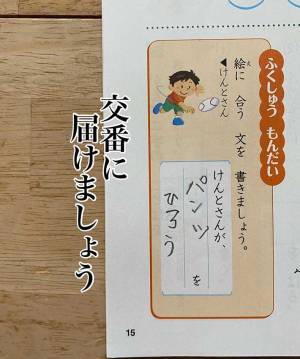 ふくしゅう もんだい
絵に 合う 文を 書きましょう。
え
◀けんとさん
けんとさんが、
パンツ を
ひろう
交番に
届けましょう
15